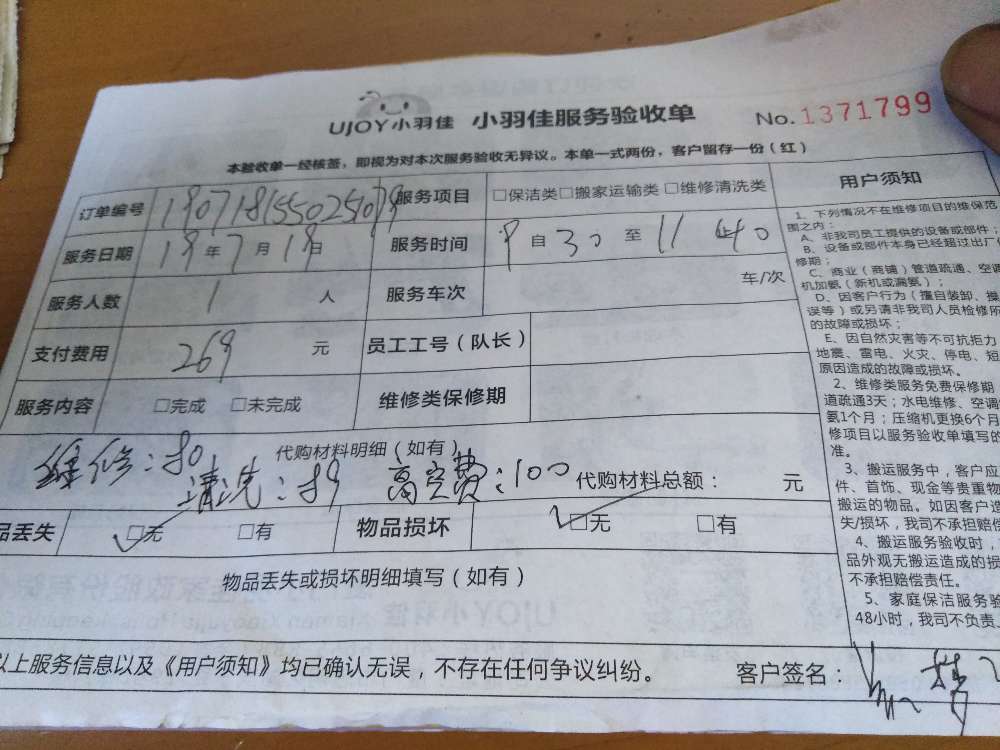 UJOY小羽佳 小羽佳服务验收单 No.1371799
本验收单一经核签，即视为对本次服务验收无异议。本单一式两份，客户留存一份（红）
订单编号 服务项目 □保洁类□搬家运输类□维修清洗类
服务日期 19年7月19日 服务时间 9自30至11 40
服务人数 1人 服务车次 车/次
支付费用 269元 员工工号（队长）
服务内容 □完成 □未完成 维修类保修期
代购材料明细（如有）
维修：80 清洗：89 高空费：100 代购材料总额： 元
品丢失 □无 □有 物品损坏 □无 □有
物品丢失或损坏明细填写（如有）
以上服务信息以及《用户须知》均已确认无误，不存在任何争议纠纷。 客户签名：
用户须知
1、下列情况不在维修项目的维保范
围之内：
A、非我司员工提供的设备或部件；
B、设备或部件本身已经超过出厂
修期；
C、商业（商铺）管道疏通、空调
机加氨（新机或漏氨）；
D、因客户行为（擅自装卸、操
误等）或另请非我司人员检修所
的故障或损坏；
E、因自然灾害等不可抗拒力
地震、雷电、火灾、停电、短
原因造成的故障或损坏。
2、维修类服务免费保修期
道疏通3天；水电维修、空调
氨1个月；压缩机更换6个月
修项目以服务验收单填写的
准。
3、搬运服务中，客户应
件、首饰、现金等贵重物
搬运的物品。如因客户造
失/损坏，我司不承担赔偿
4、搬运服务验收时，
品外观无搬运造成的损
不承担赔偿责任。
5、家庭保洁服务验
48小时，我司不负责